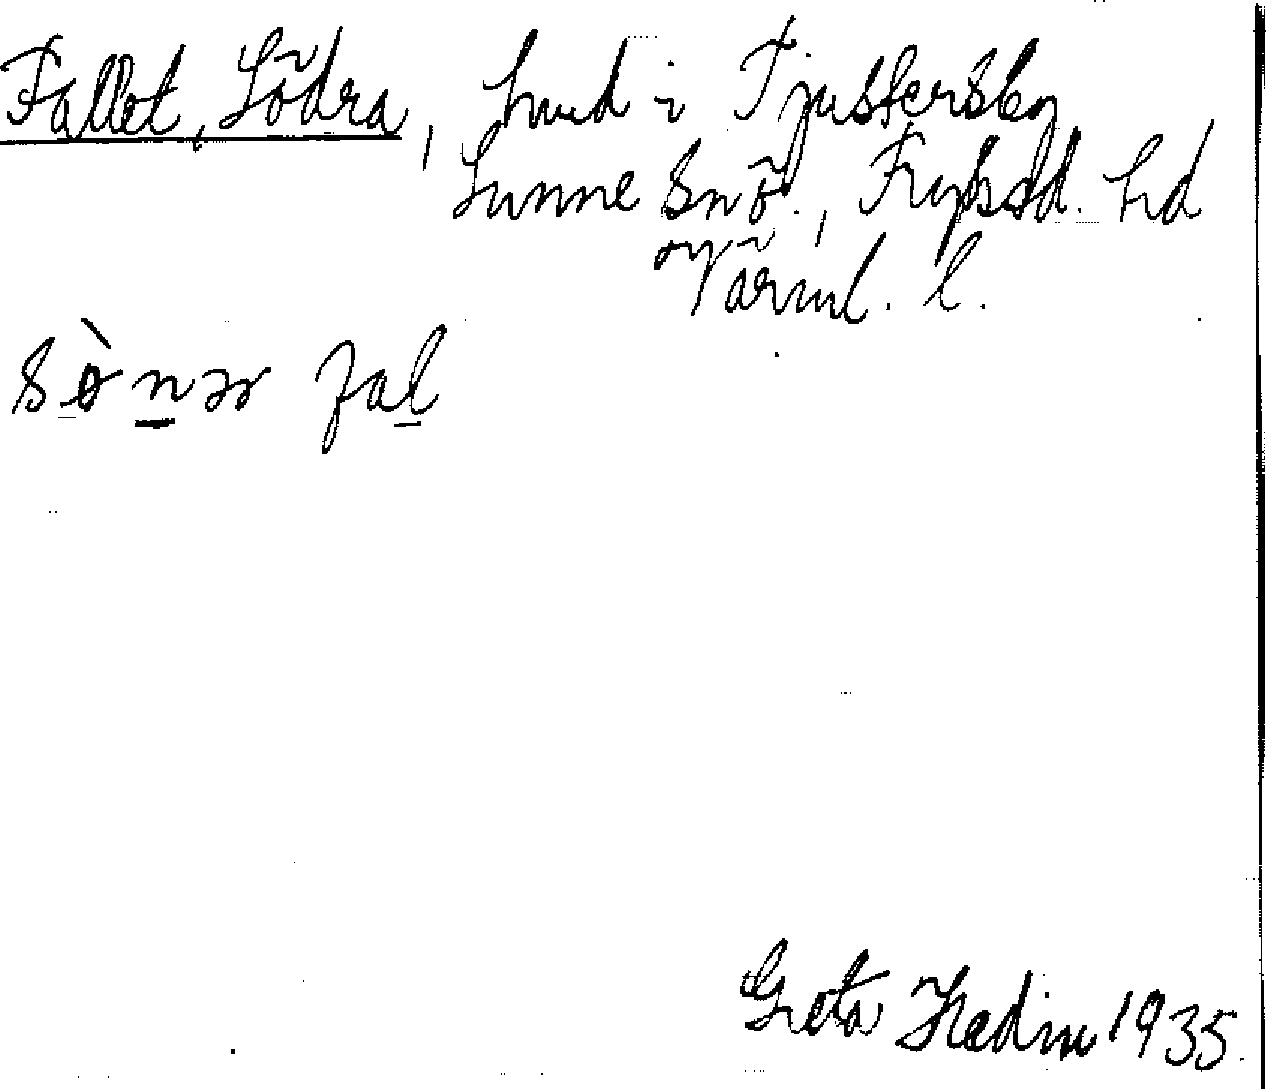 Fallet, Södra, hmd i Tjustersby
Sunne snö., Fryksd. hd
Värml. l.
sò̱ṉər faḻ
Greta Hedin 1935.